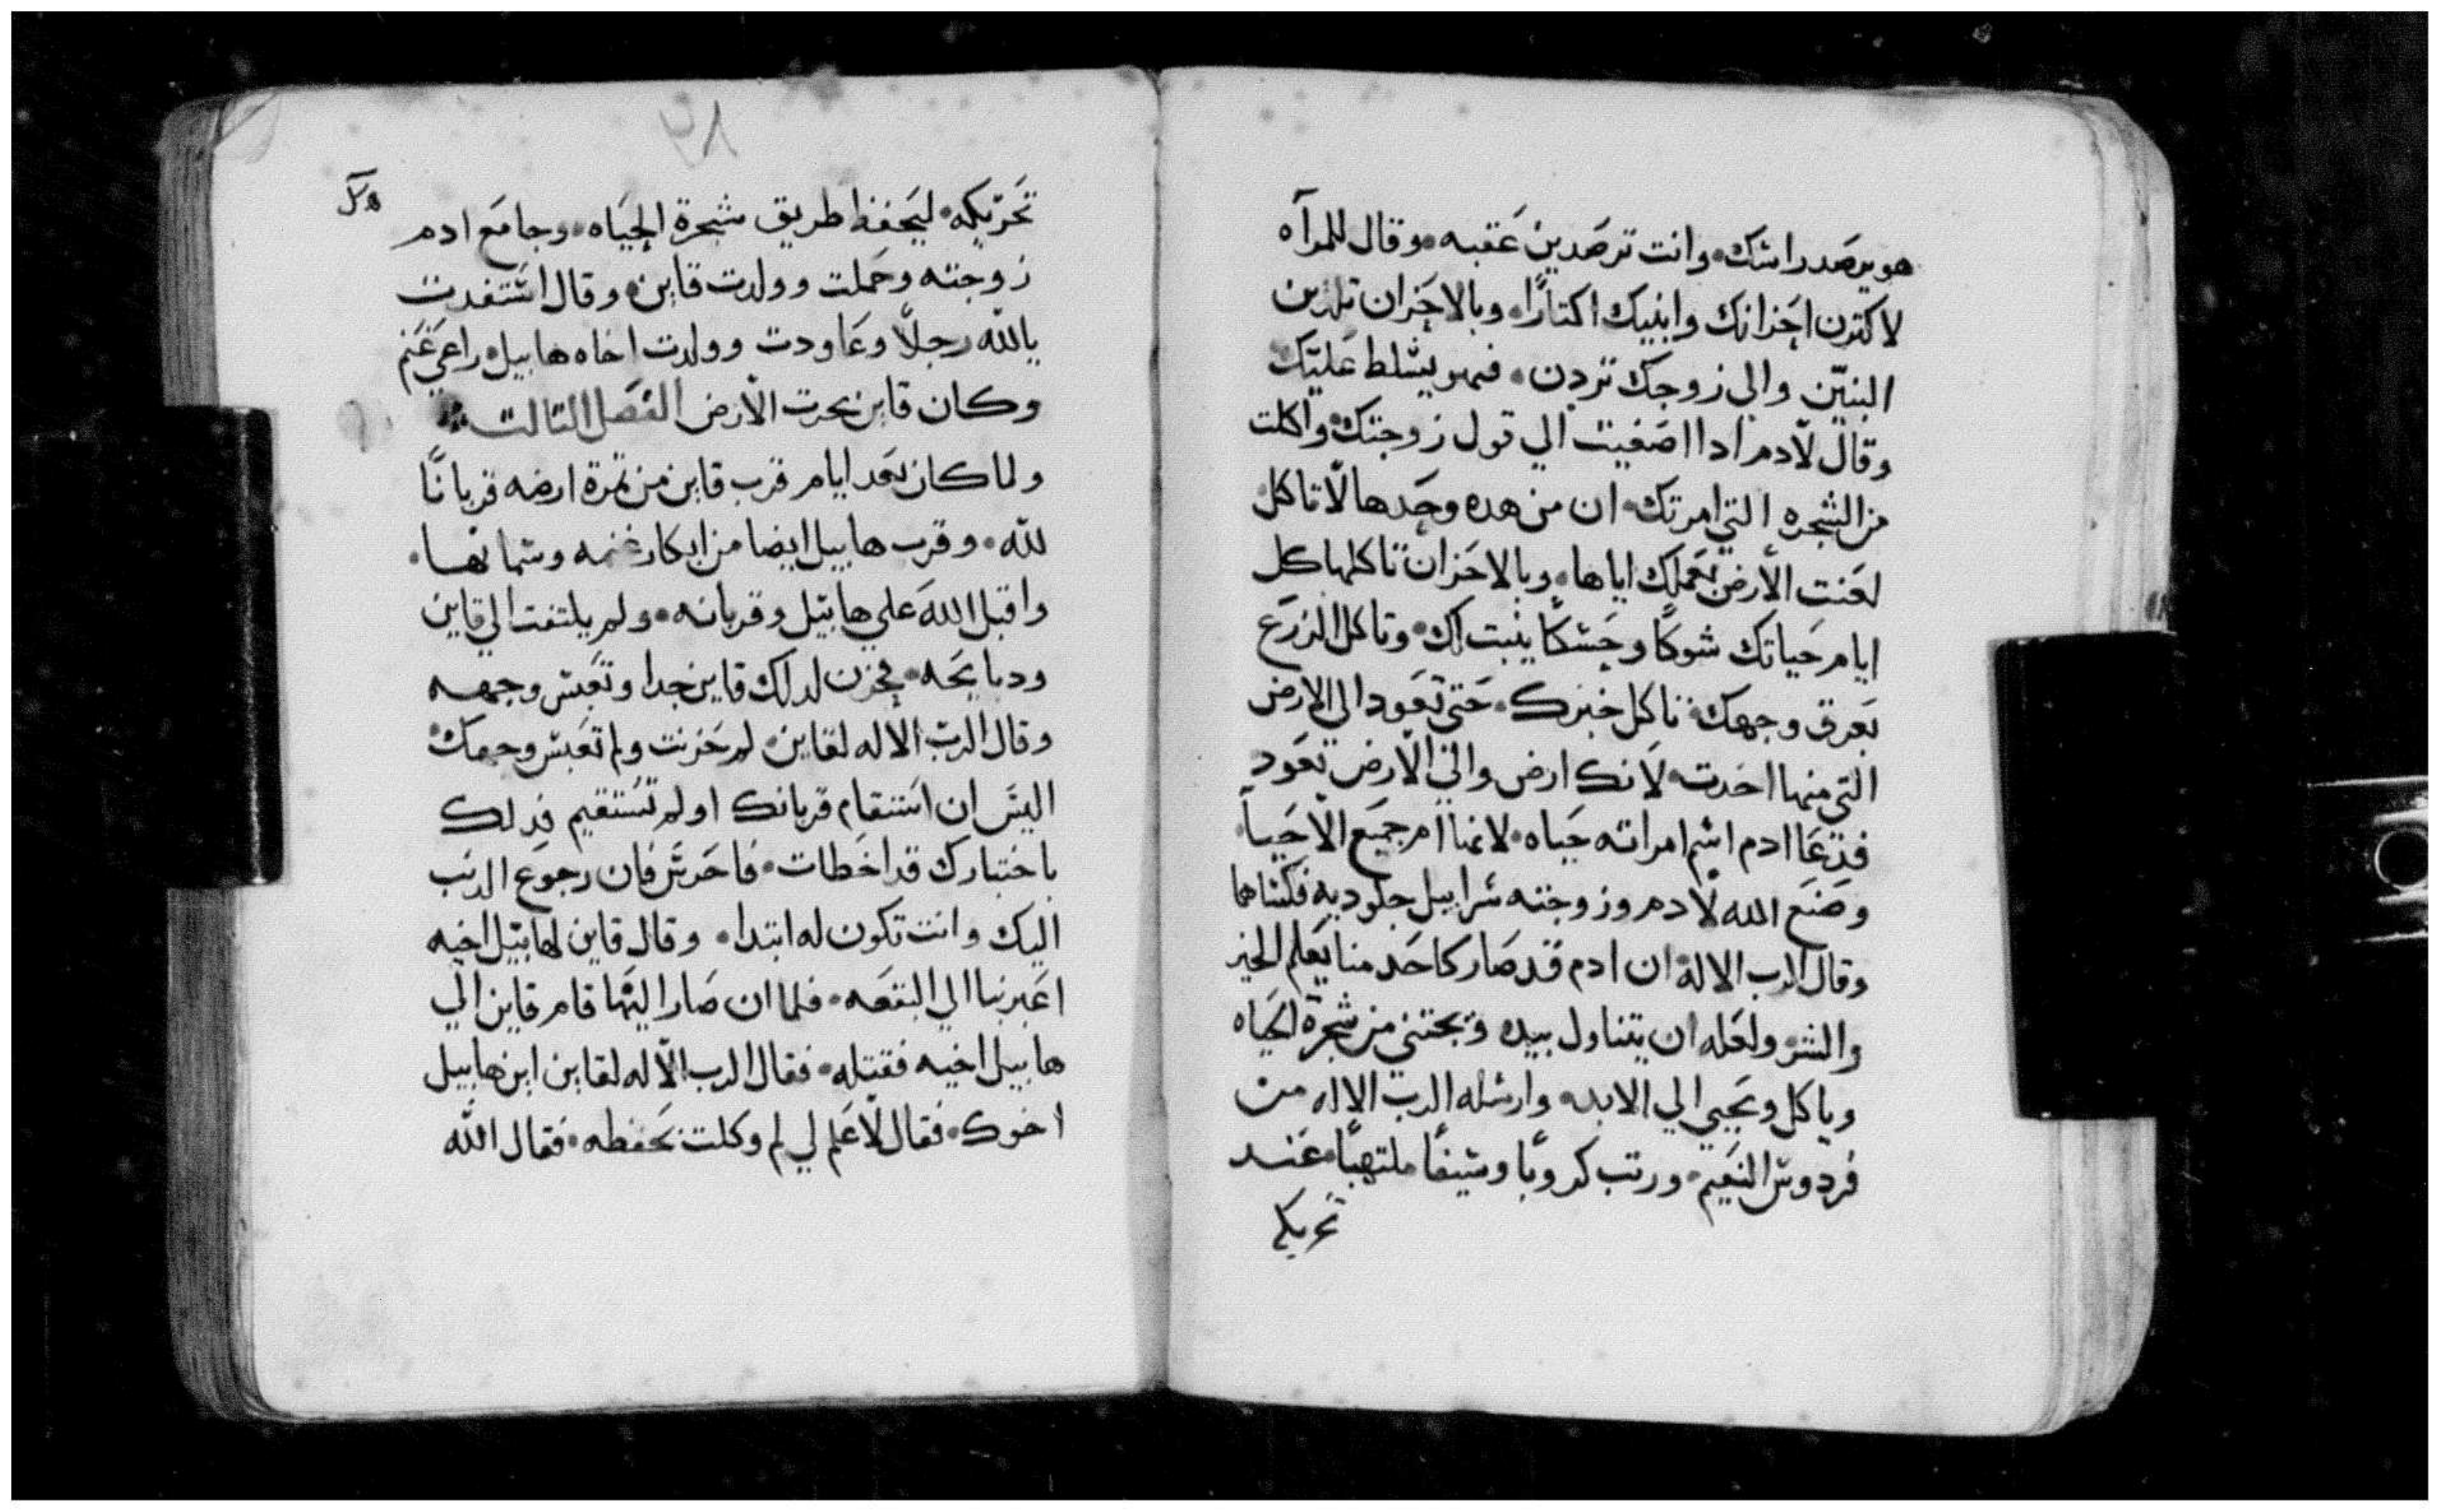 هو يرصد راسك وانت ترصدين عَقبه وقال للمرآه
لاكترن احزانك وانينك اكتارًا وبالاحزان تلدين
البنيّن والي زوجك تردن فهو يسلط عَليك
وقال لآدم ادا اصَغيت الي قول زوجتك واكلت
من الشجره التي امرتك ان من هده وحَدها لا تاكل
لعَنت الأرض بعَملك اياها وبالاحَزان تاكلها كل
ايام حَياتك شوكًا وحَسكًا ينبت لك وتاكل الزرَع
بَعرق وجهك تاكل خبزك حَتي تعَود الي الارض
التي منها اخدت لانك ارض والي الارض تعَود
فدَعَا ادم اسم امراته حَياه لانها ام جميَع الاحَيا
وصَنَع الله لادم وزوجته سرابيل جلوديه فكساهما
وقال الرب الاله ان ادم قد صَار كاحَد منا يَعلم الخير
والشر ولعَله ان يتناول بيده ويجتني من شجرة الحَياه
وياكل ويحَيي الي الابد وارسله الرب الاله من
فردوس النعَيم ورتب كروبًا وسيفًا ملتهبًا عَند
تحريكه
٢٨
تحَرّيكه ليحَفظ طريق شجرة الحَياه وجامَع ادم
زوجته وحَملت وولدت قاين وقال استفدت
بالله رجلاً وعَاودت وولدت اخاه هابيل راعَي غَنم
وكان قاين يحرت الأرض الفصَل التالت
ولما كان بعَد ايام قرب قاين من تمرة ارضه قربانًا
لله وقرب هابيل ايضا من ابكار غنمه وسمانها
واقبل الله علي هابيل وقربانه ولم يلتفت الي قاين
ودبايحَه فحَزن لدلك قاين جدا وتعَبس وجهه
وقال الرب الاله لقاين لم حَزنت ولم تعَبس وجهك
اليسَ ان استقام قربانك او لم تستقيم فدلك
باختبارك قد اخطات فاحَرسَ فان رجوعَ الدنب
اليك وانت تكون له ابتدا وقال قاين لهابيل اخيه
اعَبر بنا الي البقعَه فلما ان صَارا اليها قام قاين الي
هابيل اخيه فقتله فقال الرب الاله لقاين اين هابيل
اخوك فقال لا عَلم لي لم وكلت بحَفظه فقال الله